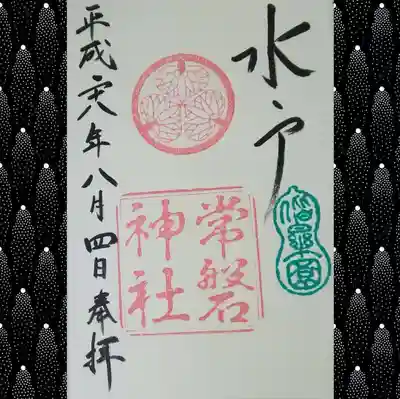 水戸
偕楽園
常磐
神社
平成二八年八月四日奉拝